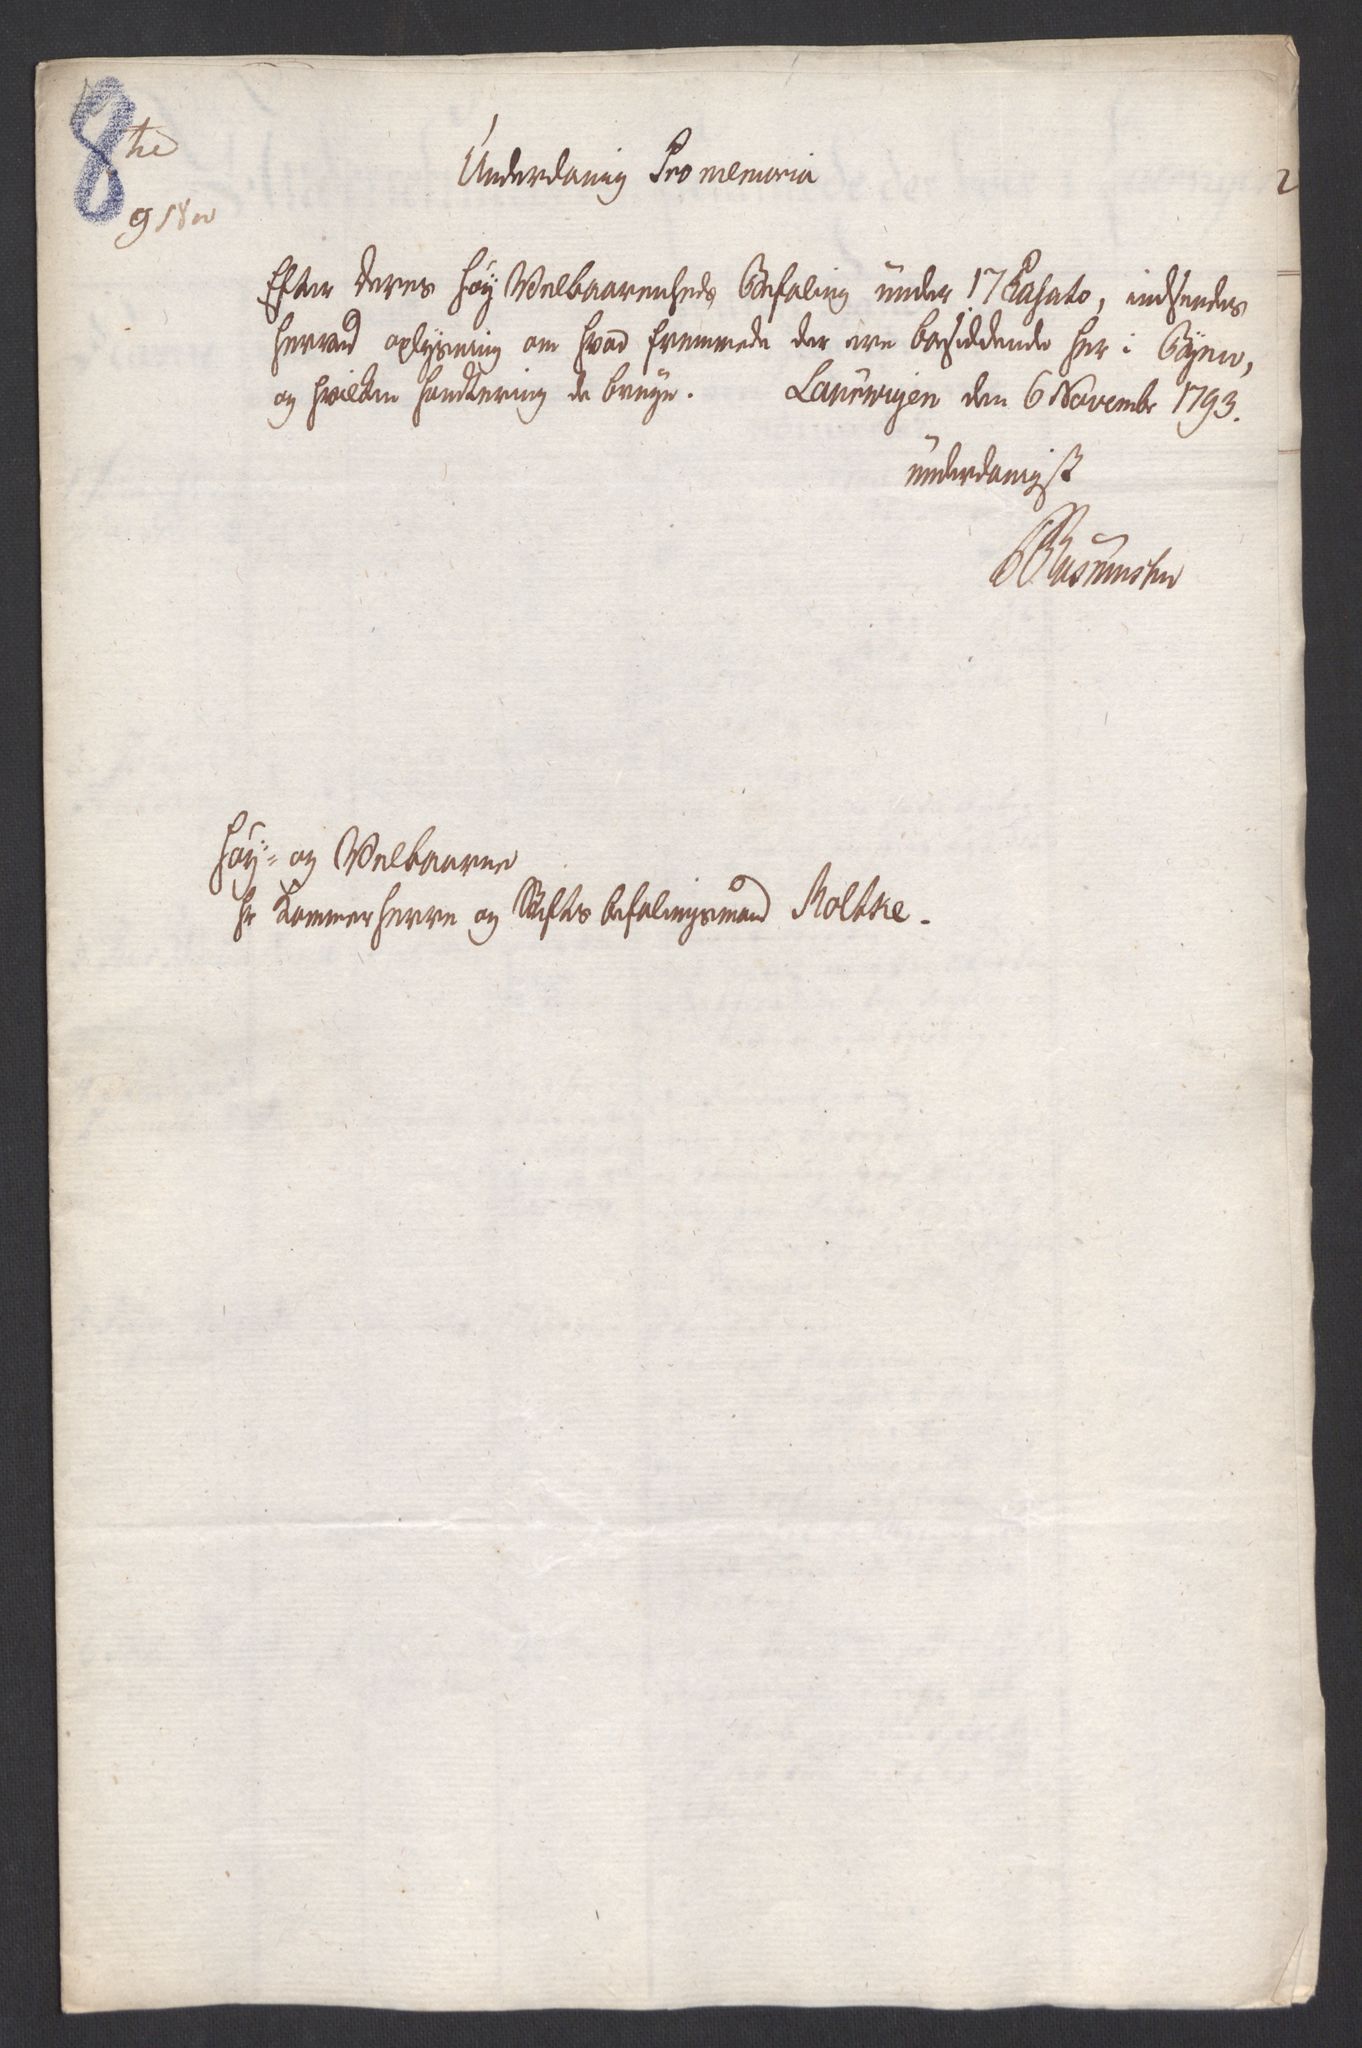 8
Underdanig Promemoria
Efter Deres Høy Velbaarenheds Befaling under 17 Passato, indsendes
herved oplysning om hvad fremmede der ere besiddende her i Byen,
og hvilken handtering de bruge. Laurwigen den 6 Novembr 1793.
underdanigst
Høy- og Velbaarne
Hr Kammerherre og Stiftsbefalingsmand Moltke.